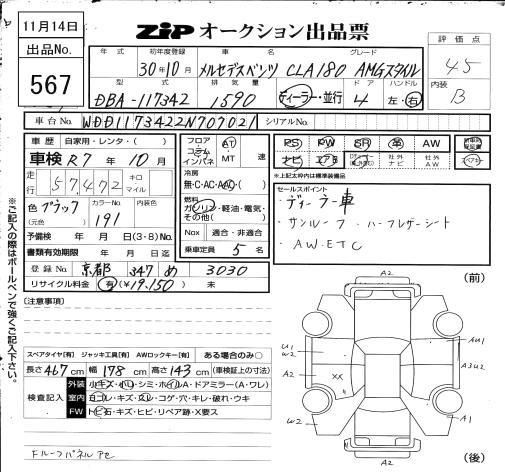 11月14日
出品No.
567
ZIP オークション出品票
年式 初年度登録 車名 グレード
30年10月 メルセデスベンツ CLA180 AMGスタイル
型式 排気量 ドア ハンドル
DBA-117342 1590 ディーラー・並行 4 左・右
評価点
4.5
内装
B
車台No. WDD1173422N707021 シリアルNo.
車歴 自家用・レンタ・( )
車検 R7年10月
走行 57,472 キロ マイル
色 ブラック カラーNo. 191
(元色)
予備検 年 月 日(3・8)No.
書類有効期限 年 月 日迄
登録No. 京都 347 め 3030
リサイクル料金 有(¥19,150) 未
フロア コラム インパネ AT MT 速
冷房
無・C・AC・AAC・( )
燃料
ガソリン・軽油・電気・その他( )
Nox 適合・非適合
乗車定員 5 名
PS PW SR 革 AW
ナビ エアB 社外ナビ 社外AW
※上記太枠内は標準装備品
セールスポイント
・ディーラー車
・サンルーフ ・ハーフレザーシート
・AW.ETC
※ご記入の際はボールペンで強くご記入下さい。
(注意事項)
スペアタイヤ[有] ジャッキ工具[有] AWロックキー[有] ある場合のみ○
長さ467cm 幅178cm 高さ143cm (車検証上の寸法)
検査記入
外装 小キズ・凹・シミ・ホイルA・ドアミラー(A・ワレ)
室内 ヨゴレ・キズ・スレ・コゲ・穴・キレ・破れ・ウキ
FW トビ石・キズ・ヒビ・リペア跡・X要ス
Fルーフパネル
(前)
A2
U1
W2
A2
W2
XX
AU1
A3U2
A1
A2
(後)